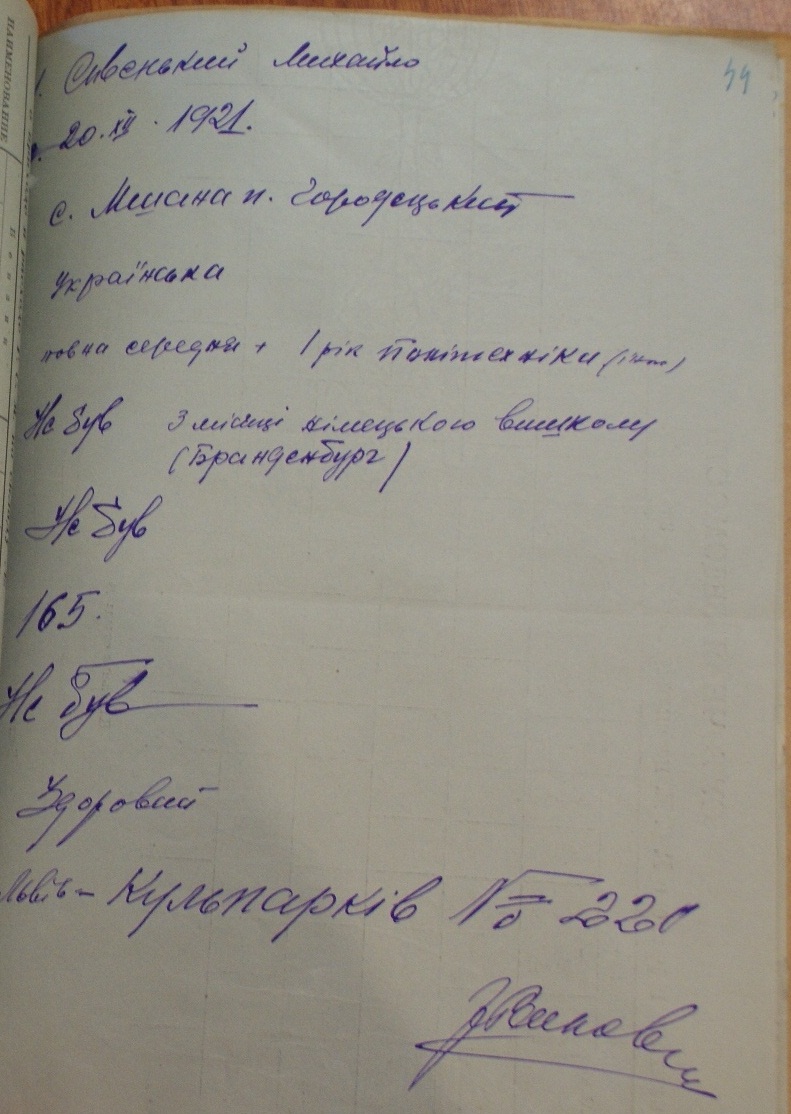 44
1. Сивенький Михайло
2. 20.XII.1921.
с. Мшана п. Городецький
українська
повна середня + 1 рік Політехніки
Не був 3 місяці німецького вишколу
(Бранденбург)
Не був
165.
Не був
Здоровий
Львів – Кульпарків № 220
НАИМЕНОВАНИЕ